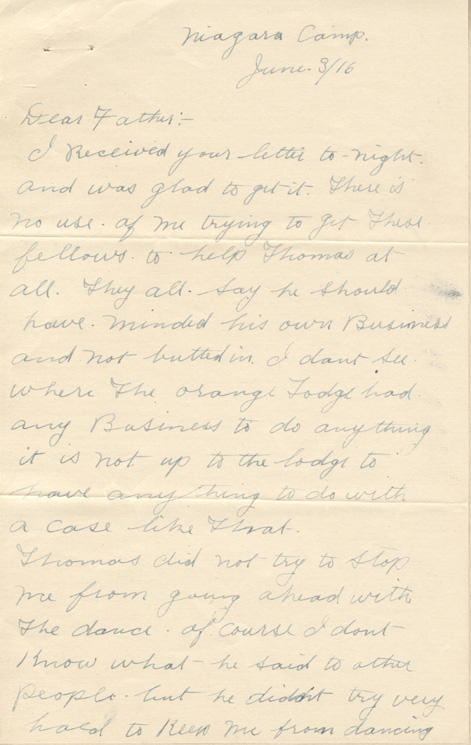 Niagara Camp.
June. 3/16
Dear Father:-
I Received your letter to-night.
and was glad to get it. There is
no use. of me trying to get These
fellows. to. help Thomas at
all. They all. say he should
have. minded his own Business
and not butted in. I dont see.
where The orange Lodge had
any Business to do anything
it is not up to the lodge to
have anything to do with
a case like That.
Thomas did not try to stop
me from going ahead with
The dance. of course I dont
Know what he said to other
people. but he didnt try very
hard to Keep me from dancing